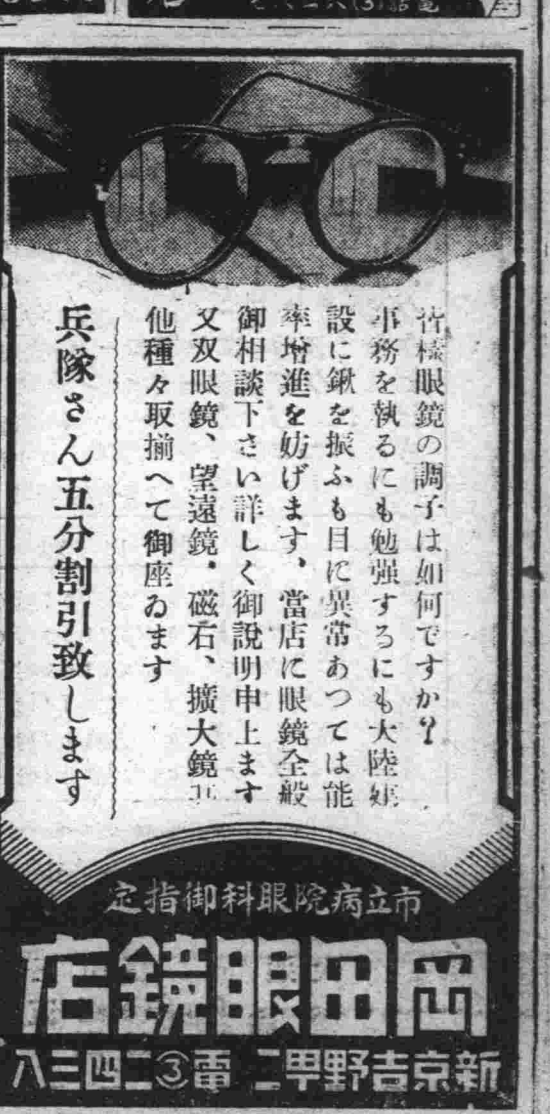 皆樣眼鏡の調子は如何ですか?
事務を執るにも勉强するにも大陸建
設に鍬を振ふも目に異常あつては能
率增進を妨げます、當店に眼鏡全般
御相談下さい詳しく御說明申上ます
又双眼鏡、望遠鏡・磁石、擴大鏡其
他種々取揃へて御座ゐます
兵隊さん五分割引致します
市立病院眼科御指定
岡田眼鏡店
新京吉野町二 電③二四三八